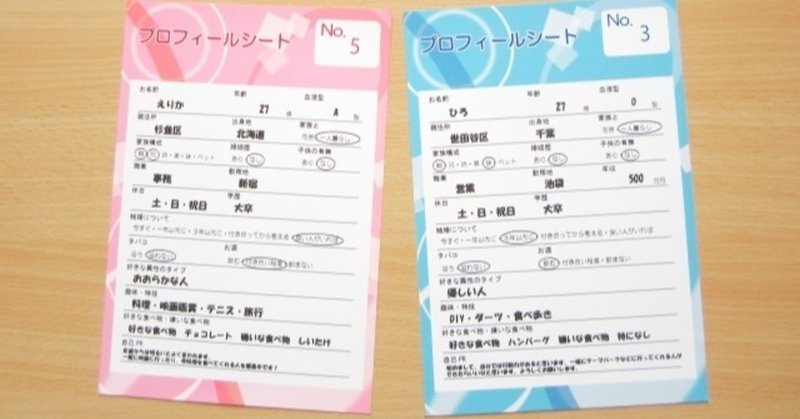 プロフィールシート
No. 5
お名前 年齢 血液型
えりか 27 歳 A 型
現住所 出身地 家族と
杉並区 北海道 同居 一人暮らし
家族構成 婚姻歴 子供の有無
親・兄・姉・弟・妹・ペット あり なし あり なし
職業 勤務地
事務 新宿
休日 学歴
土・日・祝日 大卒
結婚について
今すぐ・一年以内に・3年以内に・付き合ってから考える・良い人がいれば
タバコ お酒
吸う 吸わない 飲む 付き合い程度・飲まない
好きな異性のタイプ
おおらかな人
趣味・特技
料理・映画鑑賞・テニス・旅行
好きな食べ物・嫌いな食べ物
好きな食べ物 チョコレート 嫌いな食べ物 しいたけ
自己PR
プロフィールシート
No. 3
お名前 年齢 血液型
ひろ 27 歳 O 型
現住所 出身地 家族と
世田谷区 千葉 同居 一人暮らし
家族構成 婚姻歴 子供の有無
親 兄・姉・弟 妹 ペット あり なし あり なし
職業 勤務地 年収
営業 池袋 500 万円
休日 学歴
土・日・祝日 大卒
結婚について
今すぐ・一年以内に・3年以内に・付き合ってから考える・良い人がいれば
タバコ お酒
吸う 吸わない 飲む 付き合い程度・飲まない
好きな異性のタイプ
優しい人
趣味・特技
DIY・ダーツ・食べ歩き
好きな食べ物・嫌いな食べ物
好きな食べ物 ハンバーグ 嫌いな食べ物 特になし
自己PR